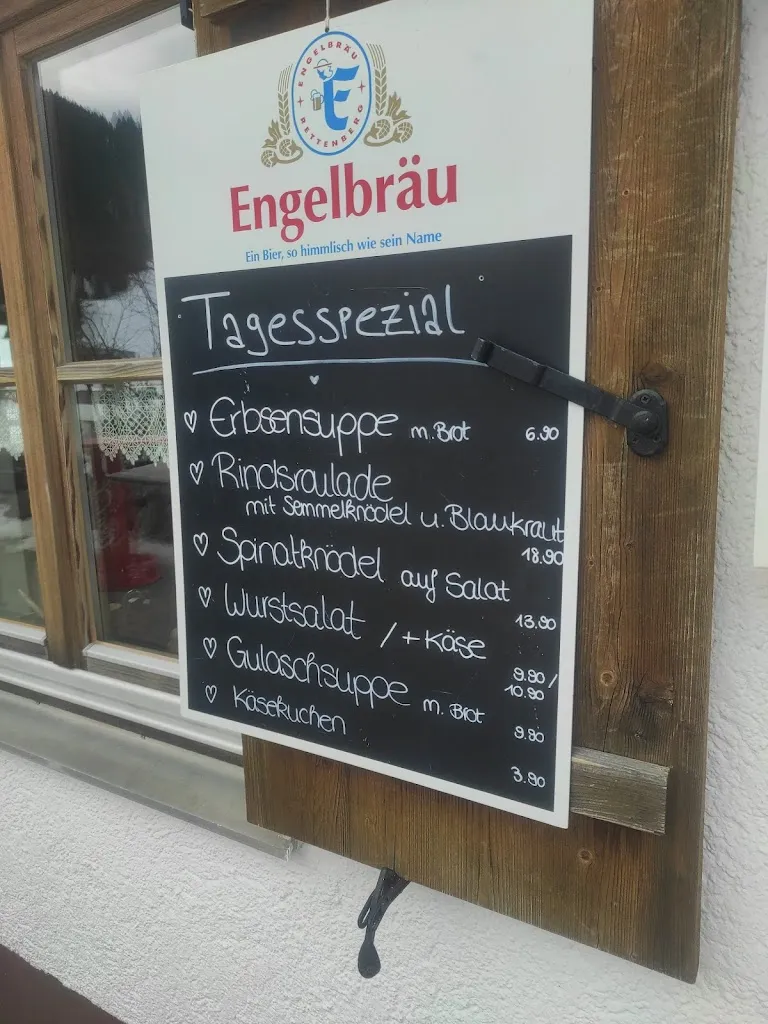 ENGELBRÄU
E
RETTENBERG
Engelbräu
Ein Bier, so himmlisch wie sein Name
Tagesspezial
Erbsensuppe m. Brot 6.90
Rindsroulade
mit Semmelknödel u. Blaukraut
18.90
Spinatknödel auf Salat
13.90
Wurstsalat / + Käse
9.90 /
10.90
Gulaschsuppe m. Brot
9.90
Käsekuchen
3.90